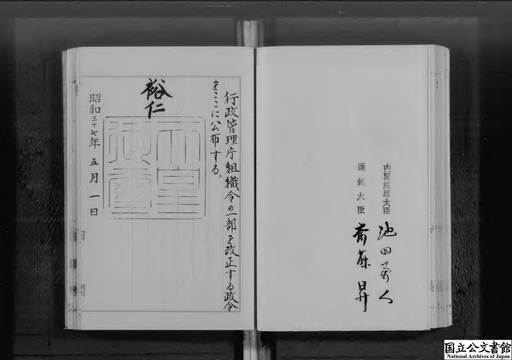 内閣総理大臣 池田勇人
運輸大臣 斎藤昇
行政管理庁組織令の一部を改正する政令
をここに公布する。
裕仁
天皇御璽
昭和三十七年五月一日
国立公文書館
National Archives of Japan